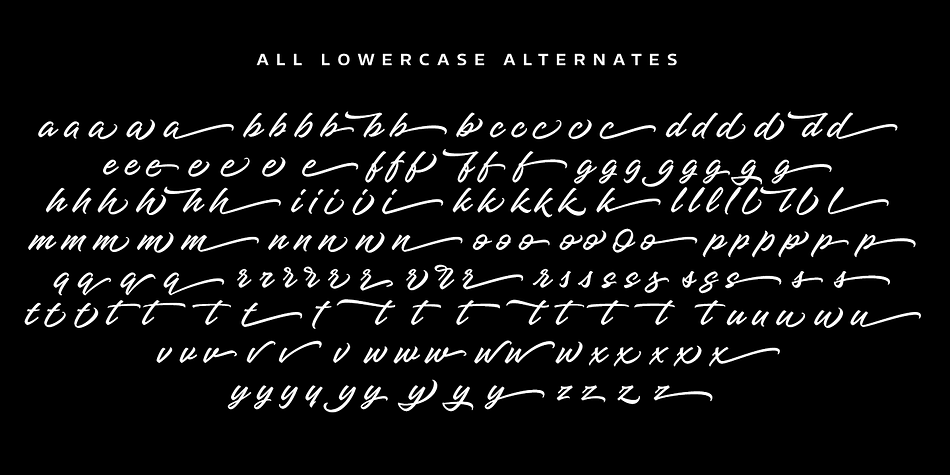 ALL LOWERCASE ALTERNATES
a a a a a b b b b b b b c c c c c d d d d d d
e e e e e e e f f f f f f g g g g g g g
h h h h h h i i i i i k k k k k k l l l l l l l l
m m m m m n n n n n o o o o o O o p p p p p p
q q q q r r r r r r r r r r r s s s c s s g s s s
t t t t t t t t t t t t t t t t u u u u u
v v v v v v w w w w w w x x x x x
y y y y y y y y y z z z z